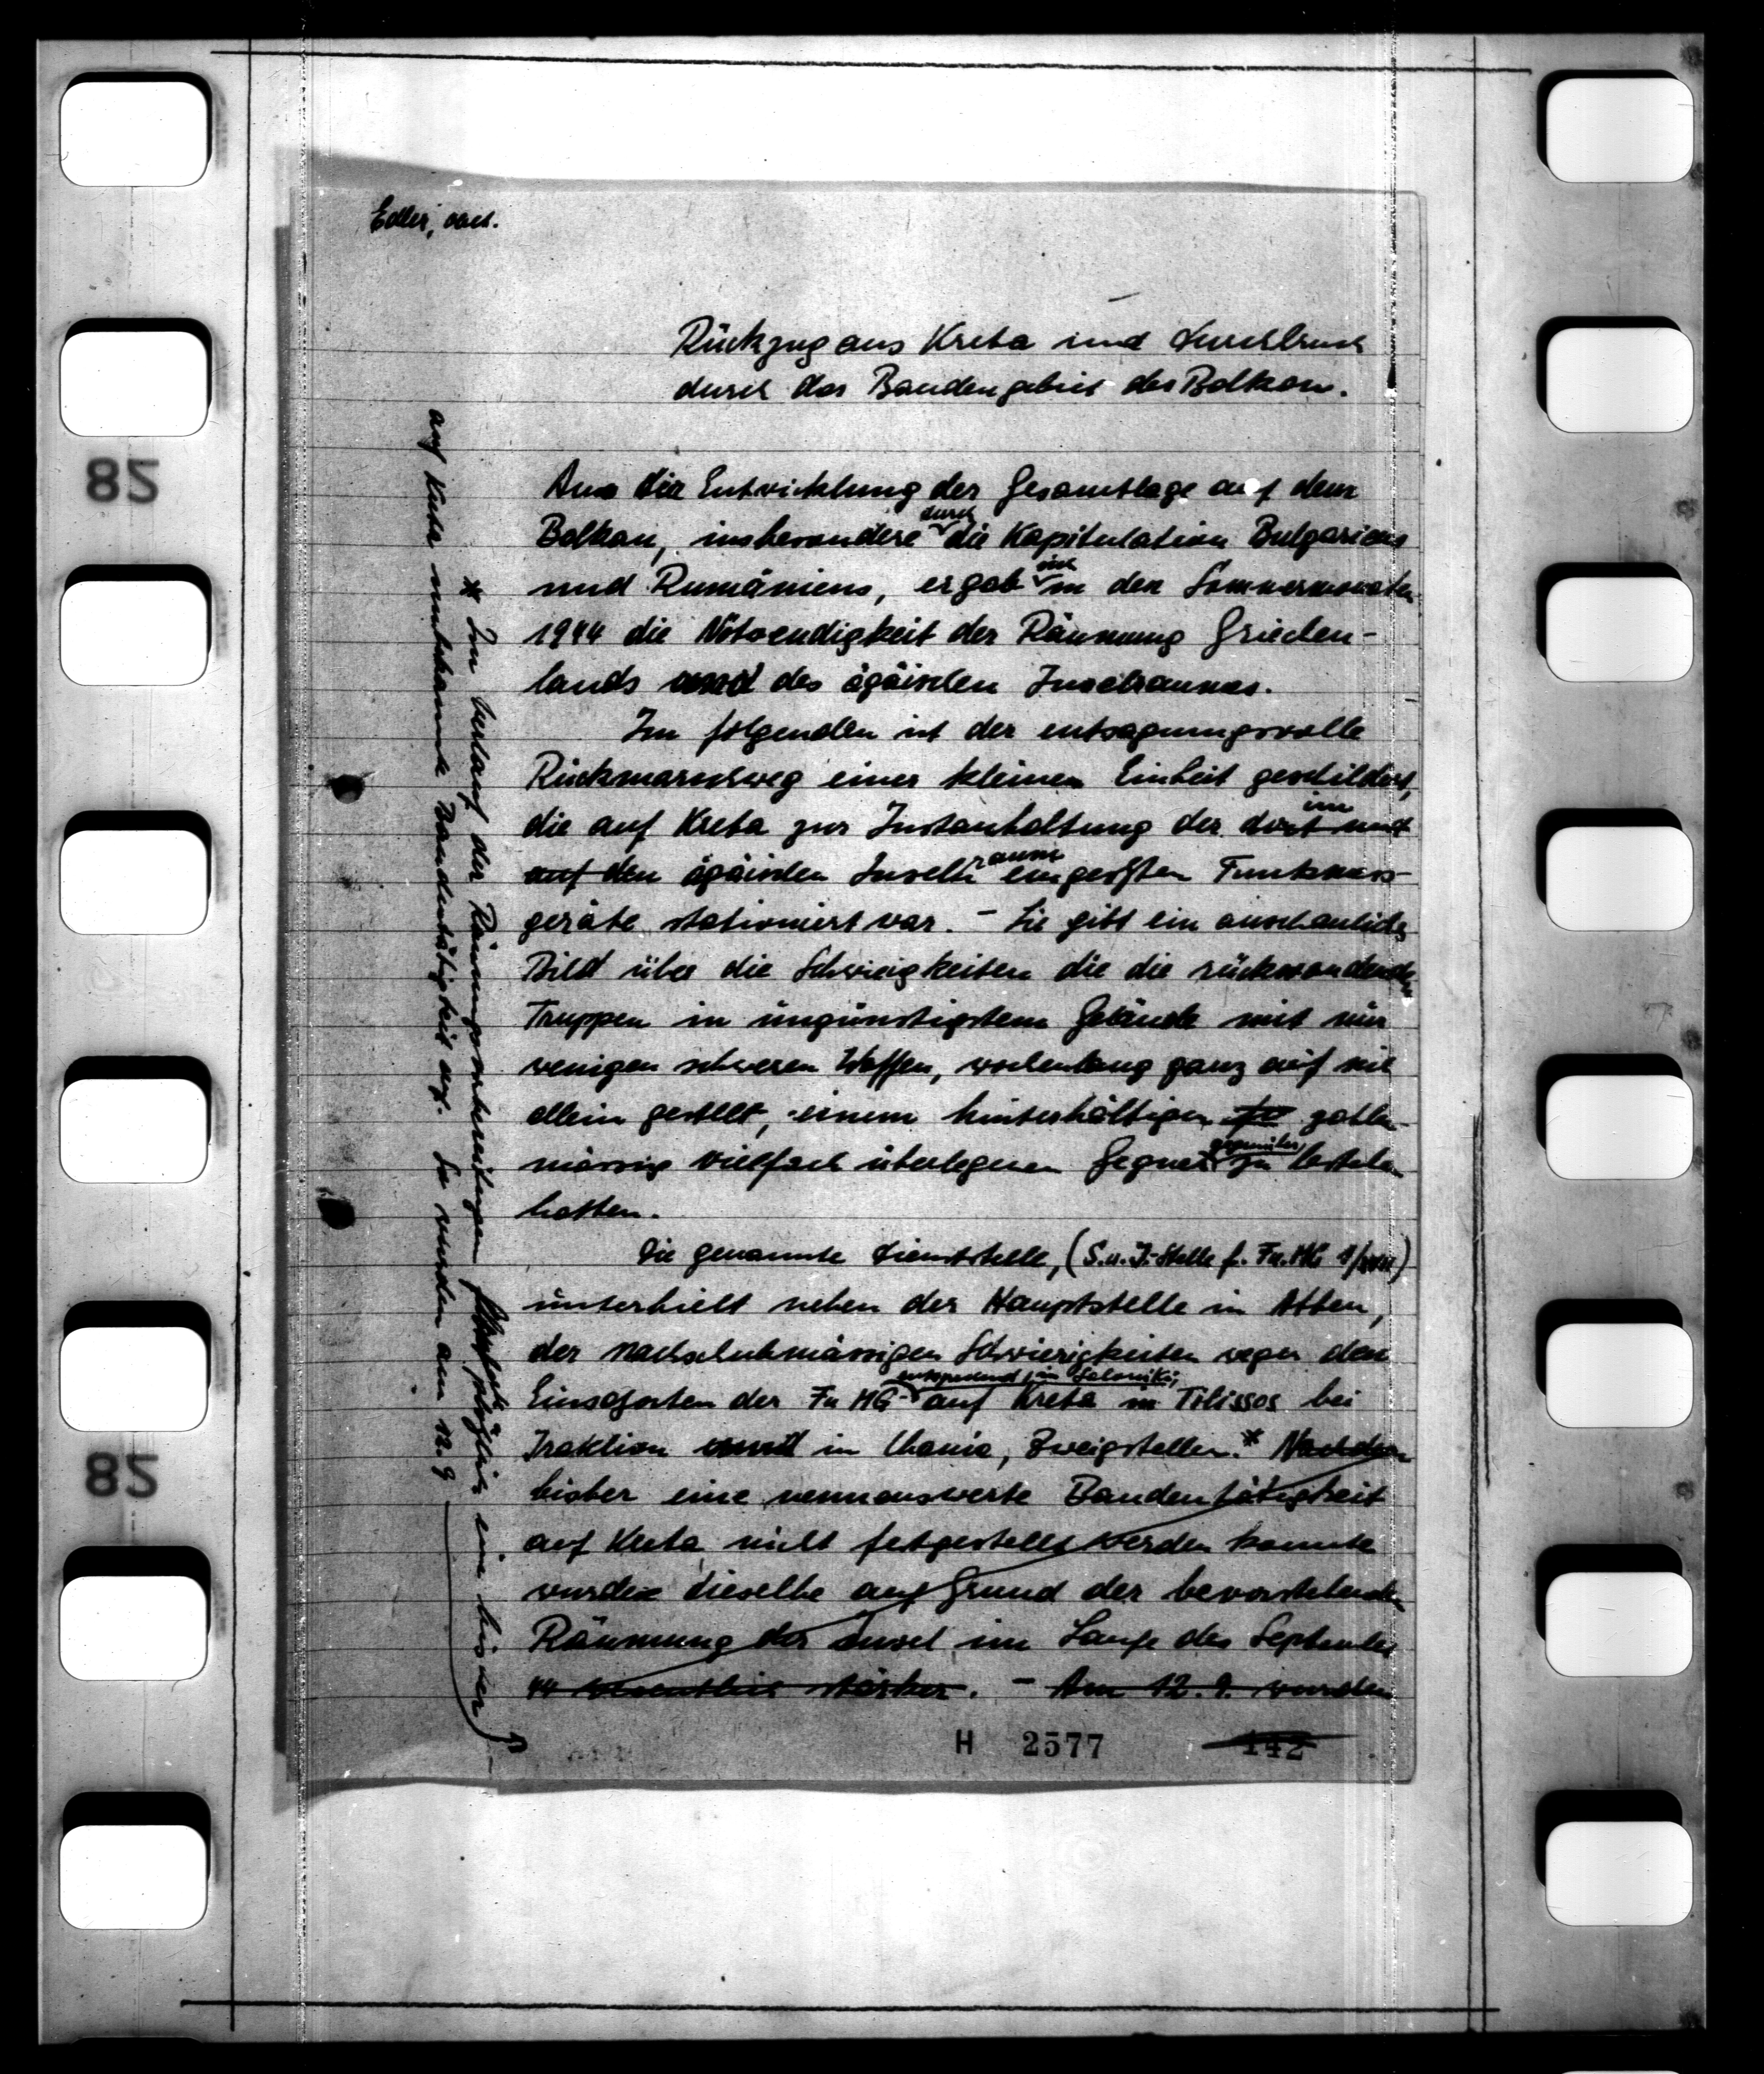 Edler,
Rückzug aus Kreta und Durchbruch
durch das Bandengebiet des Balkan.
Aus der Entwicklung der Gesamtlage auf dem
Balkan, insbesondere durch die Kapitulation Bulgariens
und Rumäniens, ergab sich in den Sommermonaten
1944 die Notwendigkeit der Räumung Griechen-
lands und des ägäischen Inselraumes.
Im folgenden ist der entsagungsvolle
Rückmarschweg einer kleinen Einheit geschildert,
die auf Kreta zur Instanhaltung der dort und im
auf den ägäischen Inselraum eingesetzten Funkmess-
geräte stationiert war. - Sie gibt ein anschauliches
Bild über die Schwierigkeiten die die rückwandernden
Truppen in ungünstigstem Gelände mit nur
wenigen schweren Waffen, wochenlang ganz auf sich
allein gestellt, einem hinterhältigen zahlen-
mässig vielfach überlegenen Gegner gegenüber zu bestehen
hatten.
Die genannte Dienststelle, (S.u.I.-Stelle f. Fu.MG
unterhielt neben der Hauptstelle in Athen,
der nachschubmässigen Schwierigkeiten wegen den
Einsatzorten der Fu MG entsprechend, in Saloniki,
auf Kreta in Tilissos bei
Iraklion und in Chania, Zweigstellen.* Nachdem
bisher eine nennenswerte Bandentätigkeit
auf Kreta nicht festgestellt werden konnte
wurde dieselbe auf Grund der bevorstehenden
Räumung der Insel im Laufe des September
44 wesentlich stärker. - Am 12.9. wurden
* Im Verlauf der Räumungsvorbereitungen plötzlich eine bisher
auf Kreta unbekannte Bandentätigkeit auf. So wurden am 12.9
H 2577 142
82
82